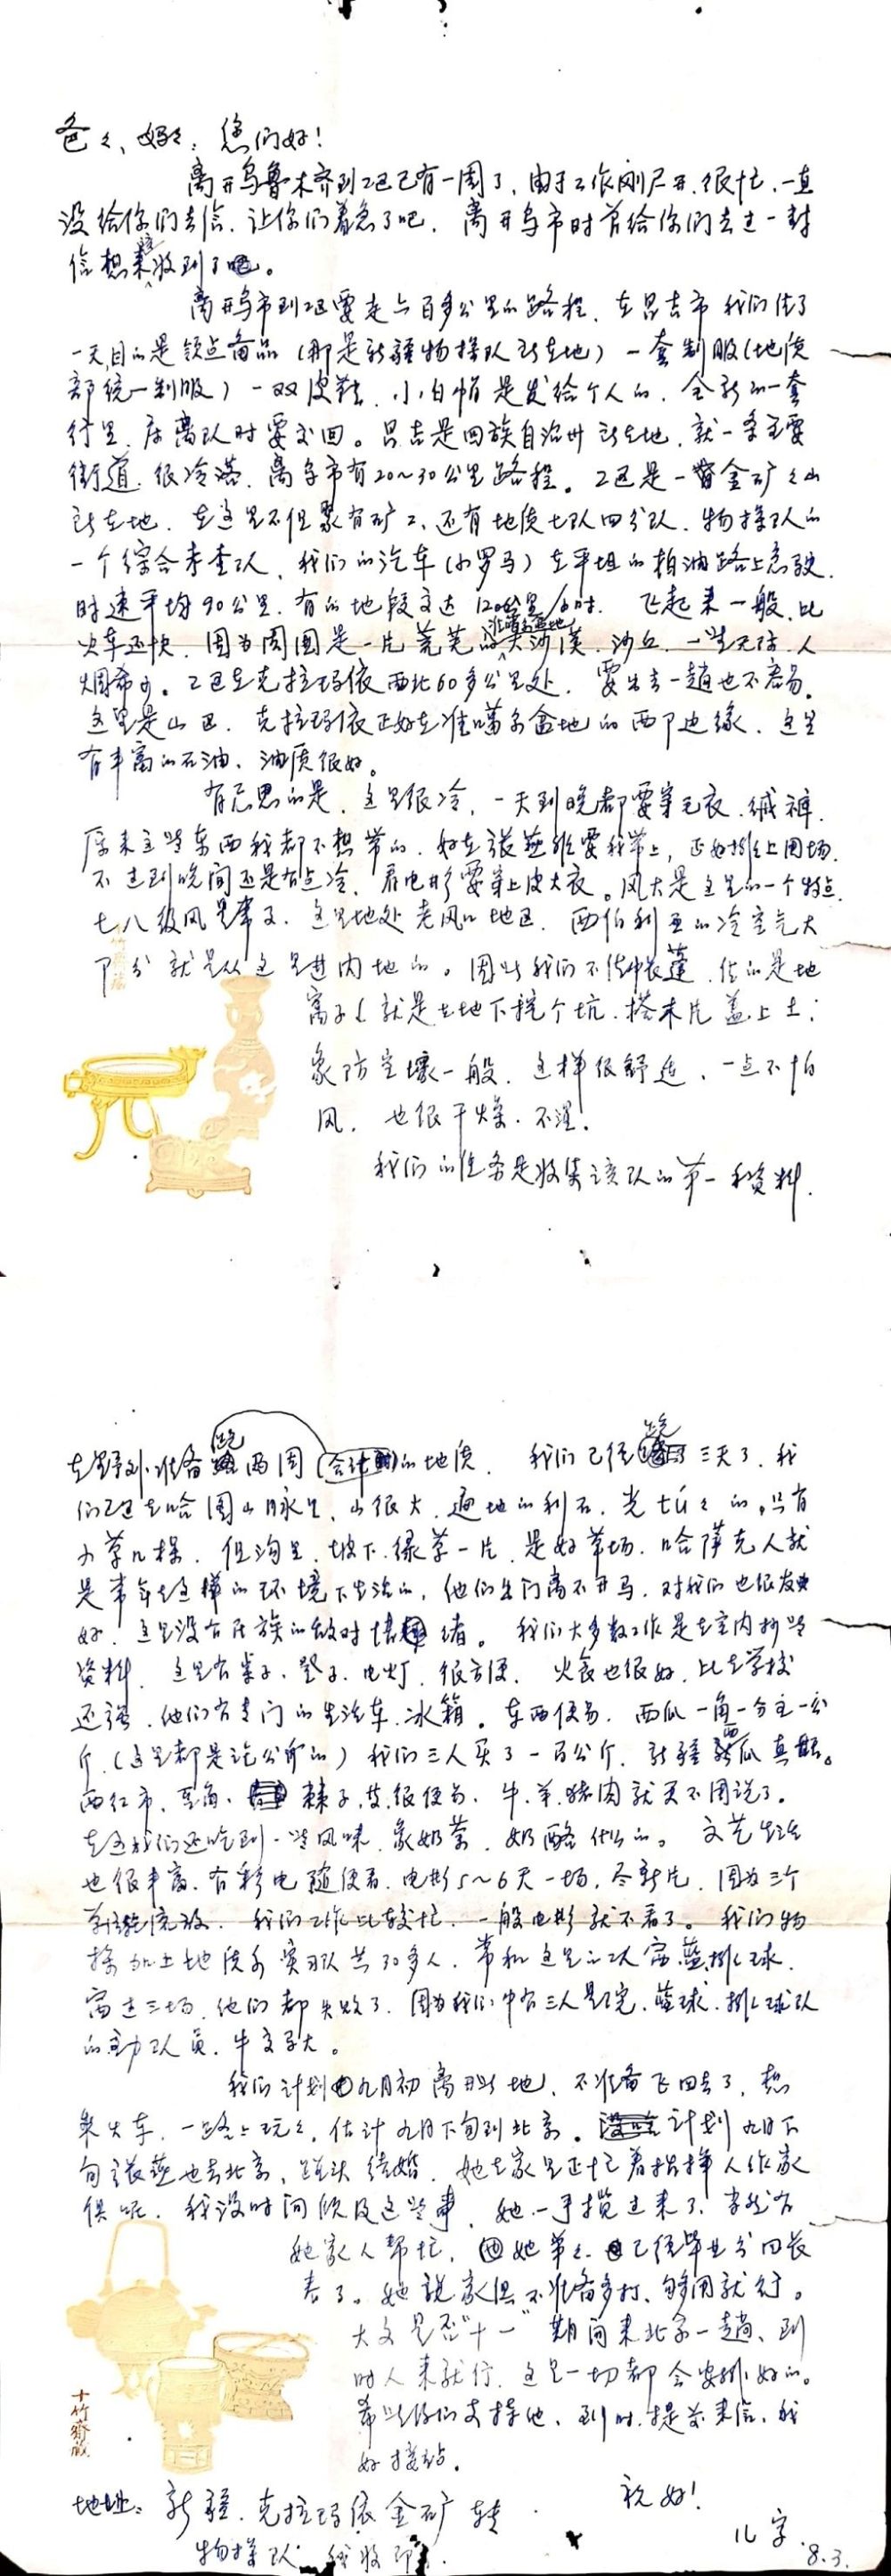 爸々、妈々：您们好！
离开乌鲁木齐到工区已有一周了，由于工作刚展开，很忙，一直
没给你们去信，让你们着急了吧，离开乌市时曾给你们去过一封
信想来该收到了吧。
离开乌市到工区要走六百多公里的路程，在昌吉市我们住了
一天，目的是领点备品（那是新疆物探队所在地）一套制服（地质
部统一制服）一双皮鞋、小白帽是发给个人的，全新的一套
行里，床离队时要交回。昌吉是回族自治州所在地，就一条主要
街道，很冷落，离乌市有20～30公里路程。工区是一金矿矿山
所在地，在这里不但聚有矿工，还有地质七队四分队、物探队的
一个综合考查队，我们的汽车（小罗马）在平坦的柏油路上急驶，
时速平均90公里，有的地段高达120公里/小时，飞起来一般，比
火车还快，因为周围是一片荒芜的准噶尔盆地大沙漠、沙丘，一望无际，人
烟稀少。工区在克拉玛依西北60多公里处，要出去一趟也不容易。
这里是山区，克拉玛依正好在准噶尔盆地的西部边缘，这里
有丰富的石油、油质很好。
有意思的是，这里很冷，一天到晚都要穿毛衣、绒裤，
原来这些东西我都不想带的，好在张燕非要我带上，正好排上用场，
不过到晚间还是有点冷，看电影要穿上皮大衣。风大是这里的一个特点，
七八级风是常事，这里地处老风口地区，西伯利亚的冷空气大
部分就是从这里进内地的。因此我们不住帐蓬，住的是地
窝子（就是在地下挖个坑，搭木片盖上土；
象防空壕一般，这样很舒适，一点不怕
风，也很干燥，不湿。
我们的任务是收集该队的第一手资料，
在野外准备跑两周（合计）的地质，我们已经跑了三天了，我
们工区在哈图山脉里，山很大，遍地的利石，光秃々的，只有
小草几棵，但沟里、坡下绿草一片，是好草场，哈萨克人就
是常年在这样的环境下生活的，他们出门离不开马，对我们也很友
好，这里没有民族的敌对情绪。我们大多数工作是在室内抄些
资料，这里有桌子、凳子、电灯，很方便，火食也很好，比在学校
还强，他们有专门的生活车、冰箱。东西便易，西瓜一角一分五一公
斤，（这里都是论公斤的）我们三人买了一百公斤，新疆西瓜真甜。
西红市、豆角、辣子、茨，很便易，牛、羊、猪肉就更不用说了。
在这我们还吃到一些风味，象奶茶、奶酪什么的。文艺生活
也很丰富，有彩电随便看，电影5～6天一场，尽新片，因为三个
单位轮流放，我们工作比较忙，一般电影就不看了。我们物
探加上地质系实习队共30多人，常和这里的工人赛蓝、排球，
赛过三场，他们都失败了，因为我们中有三人是院蓝球、排球队
的主力队员，牛高马大。
我们计划九月初离开此地，不准备飞回去了，想
乘火车，一路上玩々，估计九月下旬到北京。计划九月下
旬张燕也去北京，碰头结婚，她在家里正忙着指挥人作家
俱呢，我没时间顾及这些事，她一手揽过来了，当然有
她家人帮忙，她弟々已经毕业分回长
春了。她说家俱不准备多打，够用就行。
大文是否“十一”期间来北京一趟，到
时人来就行，这里一切都会安排好的。
希望你们支持他，到时提前来信，我
好接站。
祝好！
地址：新疆，克拉玛依金矿转
物探队 我收即可。
儿字
8.3.
十竹斋藏